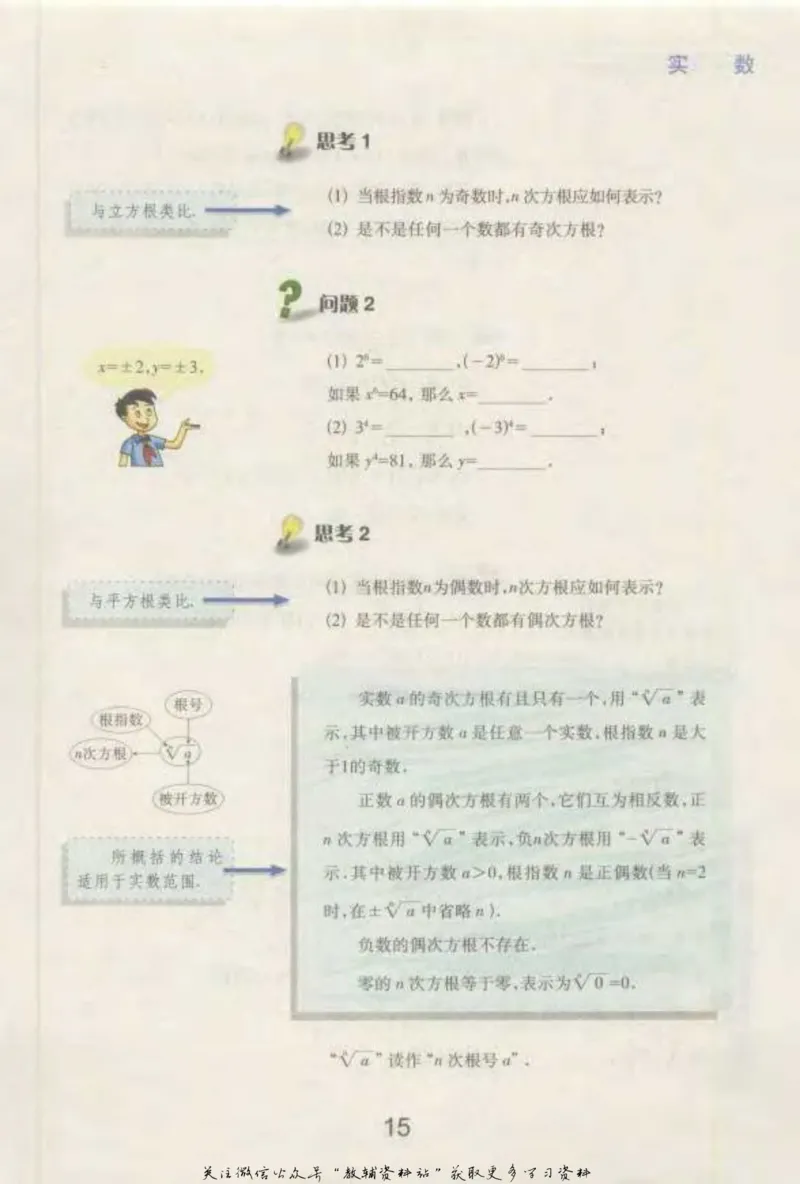 实 数
思考1
与立方根类比.
(1) 当根指数 n 为奇数时,n 次方根应如何表示?
(2) 是不是任何一个数都有奇次方根?
? 问题2
x=±2,y=±3.
(1) 2⁶=________,(-2)⁶=________;
如果 x⁶=64, 那么 x=________.
(2) 3⁴=________,(-3)⁴=________;
如果 y⁴=81, 那么 y=________.
思考2
与平方根类比.
(1) 当根指数n为偶数时,n次方根应如何表示?
(2) 是不是任何一个数都有偶次方根?
根号
根指数
n次方根
ⁿ√a
被开方数
所概括的结论
适用于实数范围.
实数 a 的奇次方根有且只有一个,用“ⁿ√a”表
示,其中被开方数 a 是任意一个实数,根指数 n 是大
于1的奇数.
正数 a 的偶次方根有两个,它们互为相反数,正
n 次方根用“ⁿ√a”表示,负n次方根用“-ⁿ√a”表
示.其中被开方数 a>0,根指数 n 是正偶数(当 n=2
时,在±ⁿ√a中省略 n).
负数的偶次方根不存在.
零的 n 次方根等于零,表示为ⁿ√0=0.
“ⁿ√a”读作“n 次根号 a”.
15
关注微信公众号“教辅资料站”获取更多学习资料